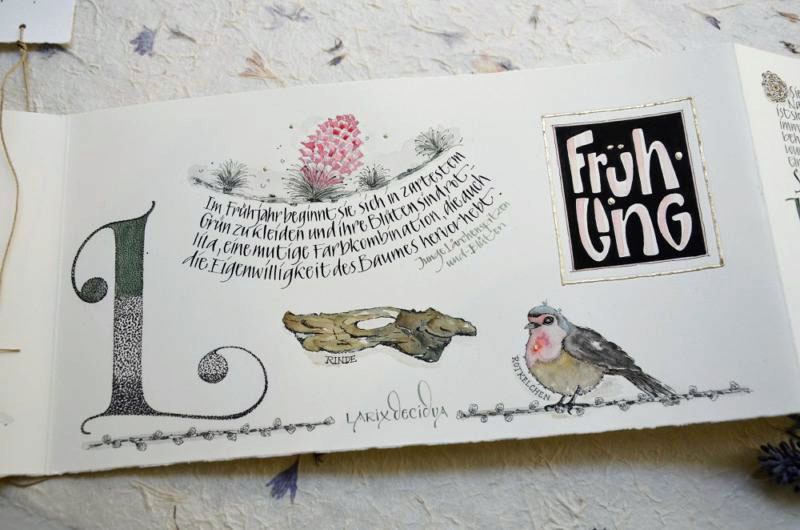 L
Im Frühjahr beginnt sie sich in zartestem
Grün zu kleiden und ihre Blüten sind rot-
lila, eine mutige Farbkombination, die auch
die Eigenwilligkeit des Baumes hervorhebt.
Junge Lärchenspitzen
und -Blüten
Früh-
ling
RINDE
ROTKELCHEN
LARIX decidua